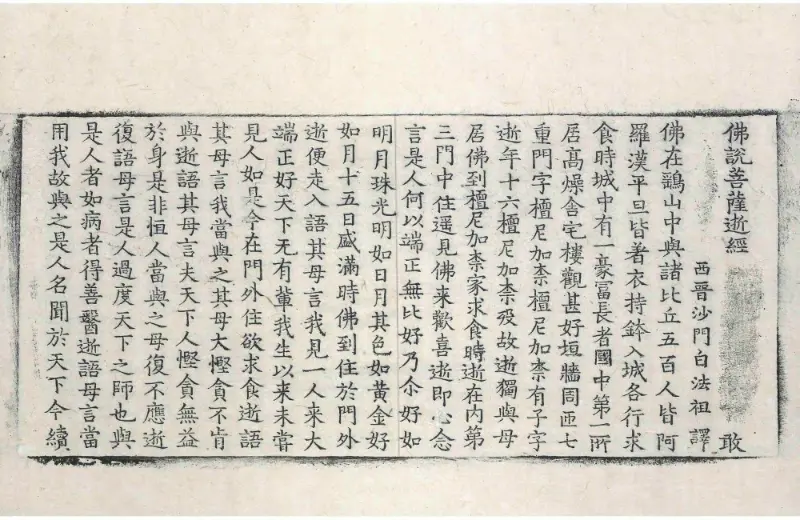 佛說菩薩逝經 敢
西晉沙門白法祖 譯
佛在鷂山中與諸比丘五百人皆阿
羅漢平旦皆著衣持鉢入城各行求
食時城中有一豪冨長者國中第一所
居高燥舍宅樓觀甚好垣牆周匝七
重門字檀尼加柰檀尼加柰有子字
逝年十六檀尼加柰歿故逝獨與母
居佛到檀尼加柰家求食時逝在内第
三門中住遥見佛來歡喜逝即心念
言是人何以端正無比好乃尒好如
明月珠光明如日月其色如黃金好
如月十五日盛滿時佛到住於門外
逝便走入語其母言我見一人來大
端正好天下无有輩我生以來未甞
見人如是今在門外住欲求食逝語
其母言我當與之其母大慳貪不肯
與逝語其母言夫天下人慳貪無益
於身是非恒人當與之母復不應逝
復語母言是人過度天下之師也與
是人者如病者得善醫逝語母言當
用我故與之是人名聞於天下今續